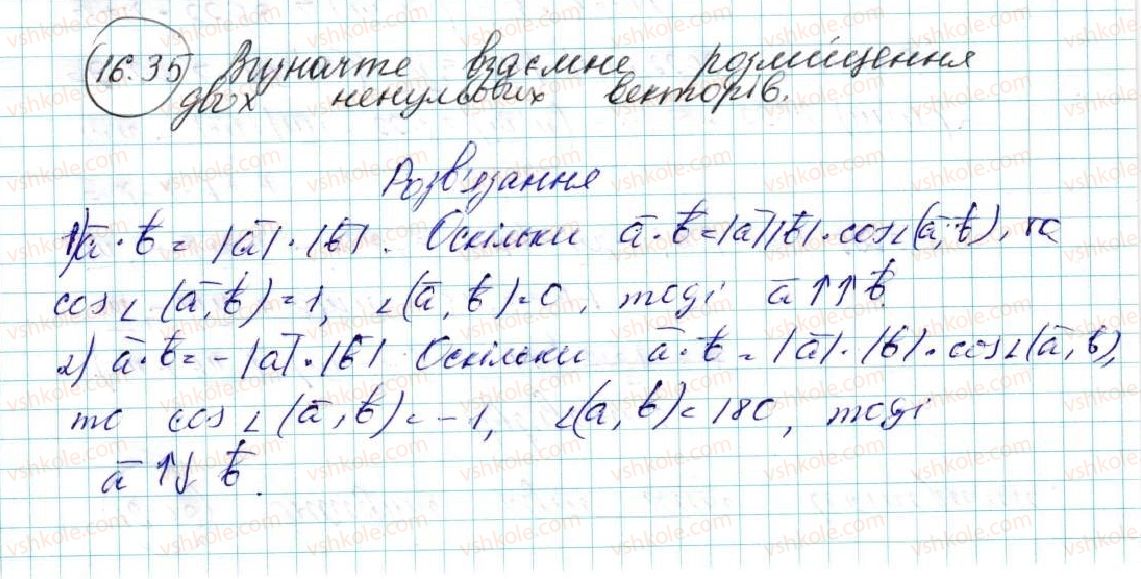 16.35 Визначте взаємне розміщення
двох ненульових векторів.
Розв'язання
1) a̅ · b̅ = |a̅| · |b̅|. Оскільки a̅ · b̅ = |a̅||b̅| · cos∠(a̅, b̅), то
cos∠(a̅, b̅) = 1, ∠(a̅, b̅) = 0, тоді a̅ ↑↑ b̅.
2) a̅ · b̅ = -|a̅| · |b̅| Оскільки a̅ · b̅ = |a̅| · |b̅| · cos∠(a̅, b̅),
то cos∠(a̅, b̅) = -1, ∠(a̅, b̅) = 180, тоді
a̅ ↑↓ b̅.